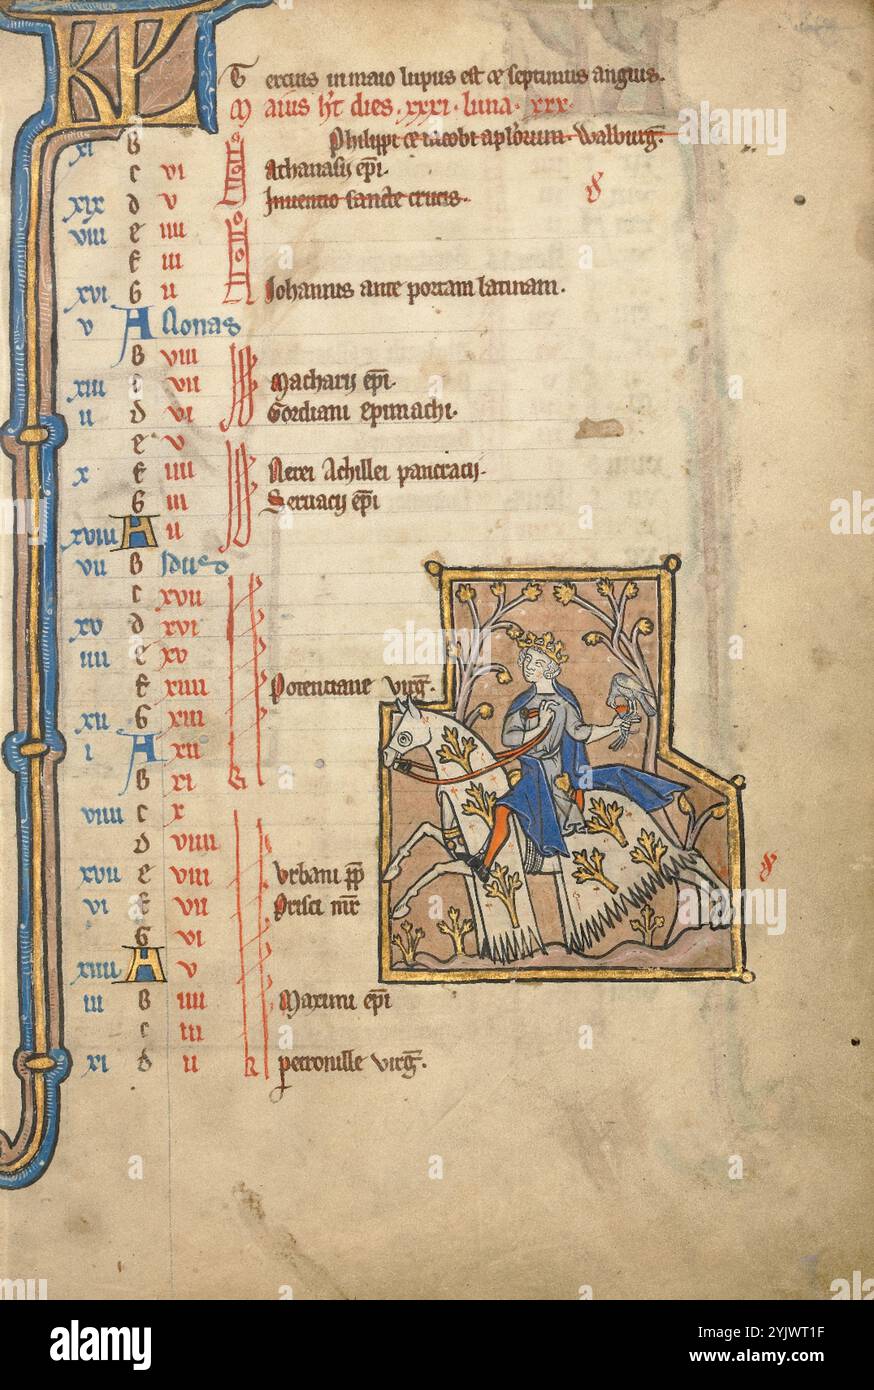 KL
Tercius in maio lupus est et septimus anguis.
Maius ht dies .xxxi. luna .xxx.
xi B Philippi et iacobi aplorum. Walburg.
c vi Athanasii epi.
xix d v Inuentio sancte crucis.
viii e iiii
f iii
xvi G ii Johannis ante portam latinam.
v A Nonas
B viii
xiii c vii Macharii epi.
ii d vi Gordiani epimachi.
e v
x f iiii Nerei Achillei pancracii.
G iii Seruacii epi
xviii A ii
vii B Idus
c xvii
xv d xvi
iiii e xv
f xiiii Potentiane virg.
xii G xiii
i A xii
B xi
viiii c x
d viiii
xvii e viii Vrbani pp
vi f vii Prisci mr
G vi
xiiii A v
iii B iiii Maximi epi
c iii
xi d ii petronille virg.
alamy
Image ID: 2YJWT1F
www.alamy.com